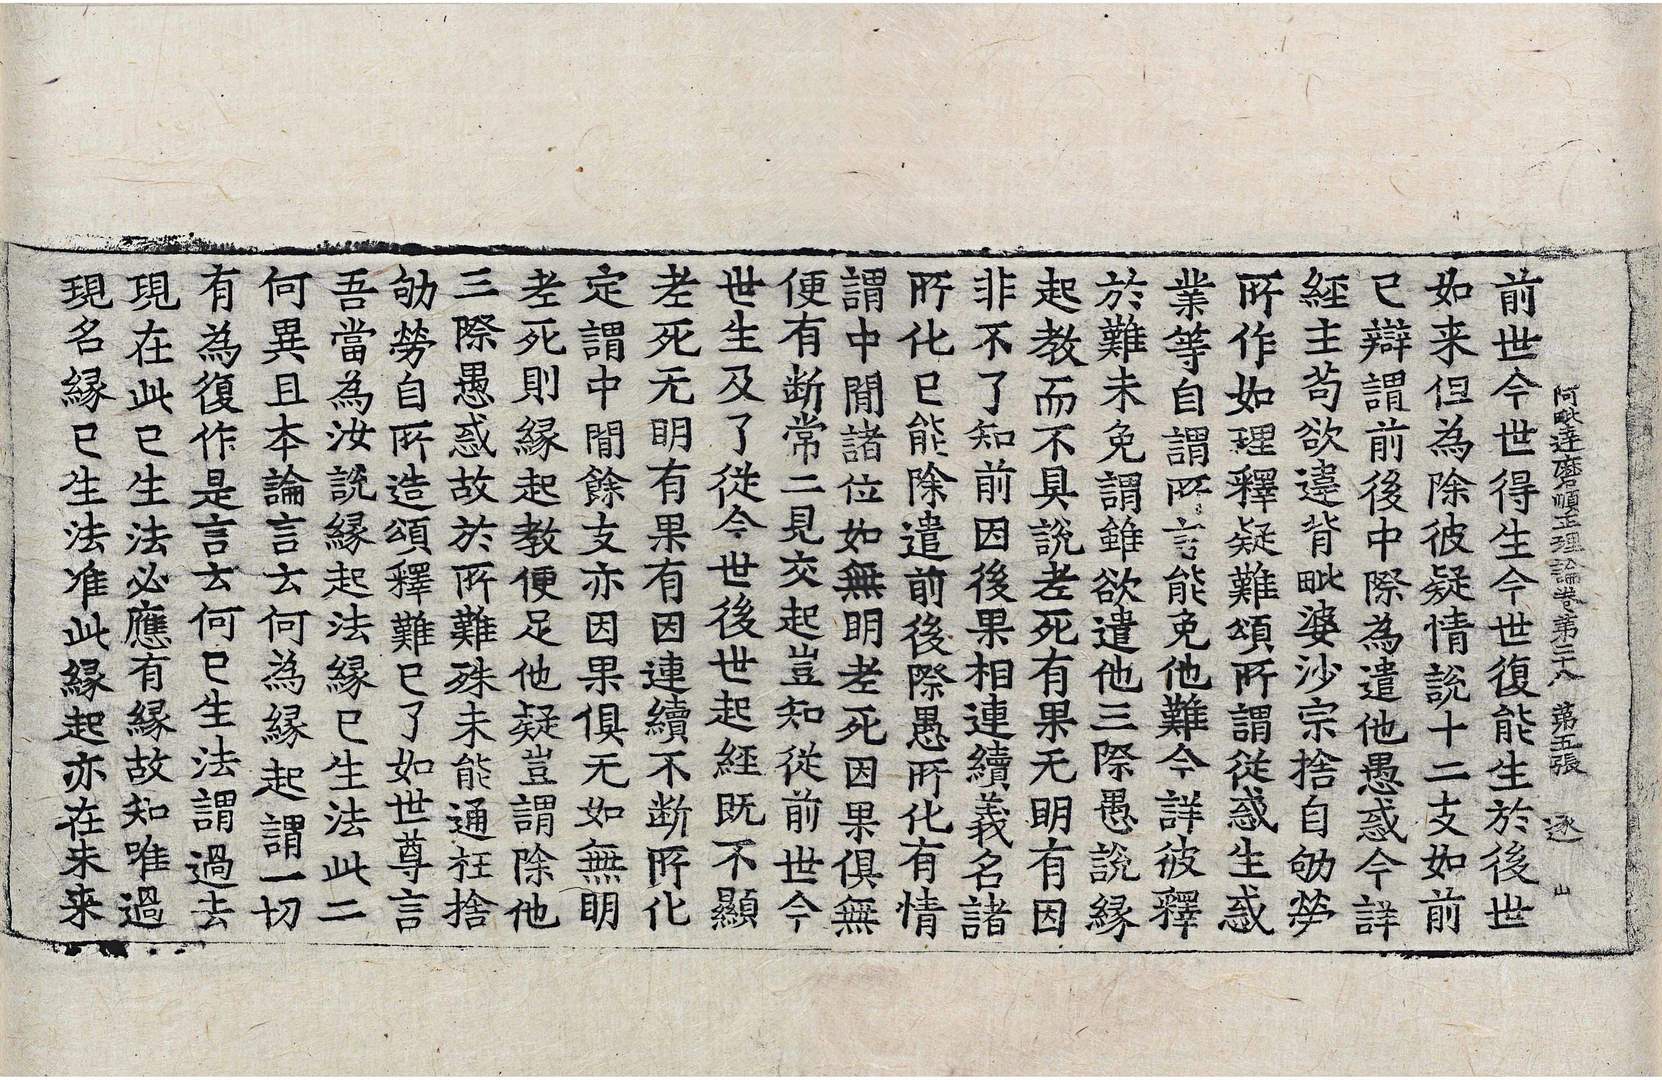 阿毗達磨順正理論卷第二十八　第五張　逐　山
前世今世得生今世復能生於後世
如来但為除彼疑情說十二支如前
已辯謂前後中際為遣他愚惑今詳
經主苟欲違背毗婆沙宗捨自劬勞
所作如理釋疑難頌所謂從惑生惑
業等自謂所言能免他難今詳彼釋
於難未免謂雖欲遣他三際愚說緣
起教而不具說老死有果无明有因
非不了知前因後果相連續義名諸
所化已能除遣前後際愚所化有情
謂中間諸位如無明老死因果俱無
便有断常二見交起豈知從前世今
世生及了從今世後世起經既不顯
老死无明有果有因連續不断所化
定謂中間餘支亦因果俱无如無明
老死則緣起教便足他疑豈謂除他
三際愚惑故於所難殊未能通枉捨
劬勞自所造頌釋難已了如世尊言
吾當為汝說緣起法緣已生法此二
何異且本論言云何為緣起謂一切
有為復作是言云何已生法謂過去
現在此已生法必應有緣故知唯過
現名緣已生法准此緣起亦在未来